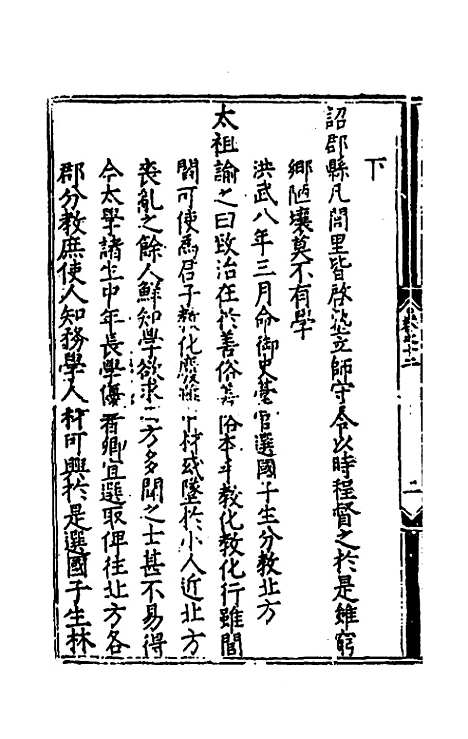 下
詔郡縣凡閭里皆啓塾立師守令以時程督之於是雖窮
鄉陋壤莫不有學
洪武八年三月命御史臺官選國子生分教北方
太祖諭之曰致治在於善俗善俗本於教化教化行雖閭
閻可使為君子教化廢雖中材或墜於小人近北方
喪亂之餘人鮮知學欲求方多聞之士甚不易得
今太學諸生中年長學優者卿宜選取俾往北方各
郡分教庶使人知務學人材可興於是選國子生林
卷之十二
二